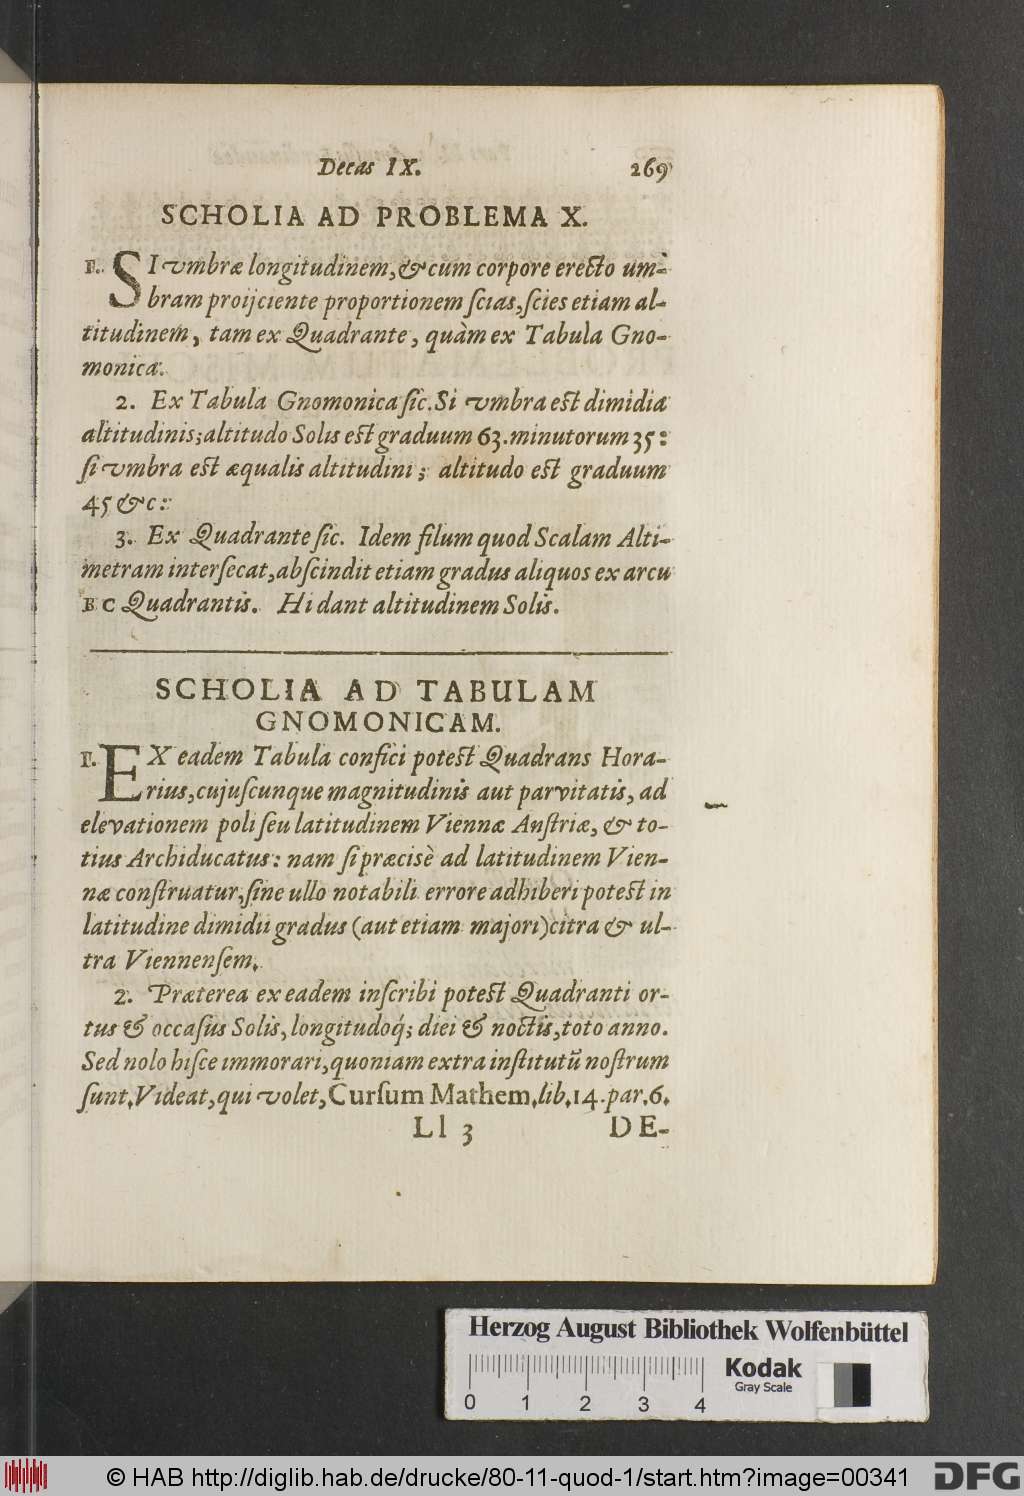 Decas IX. 269
SCHOLIA AD PROBLEMA X.
1. SI vmbræ longitudinem, & cum corpore erecto um-
bram proijciente proportionem ſcias, ſcies etiam al-
titudinem, tam ex Quadrante, quàm ex Tabula Gno-
monica.
2. Ex Tabula Gnomonica ſic. Si vmbra est dimidia
altitudinis; altitudo Solis est graduum 63. minutorum 35:
ſi vmbra est æqualis altitudini; altitudo est graduum
45 &c:
3. Ex Quadrante ſic. Idem filum quod Scalam Alti-
metram interſecat, abſcindit etiam gradus aliquos ex arcu
B C Quadrantis. Hi dant altitudinem Solis.
SCHOLIA AD TABULAM
GNOMONICAM.
1. EX eadem Tabula confici potest Quadrans Hora-
rius, cujuſcunque magnitudinis aut parvitatis, ad
elevationem poli ſeu latitudinem Viennæ Auſtriæ, & to-
tius Archiducatus: nam ſi præcisè ad latitudinem Vien-
næ conſtruatur, ſine ullo notabili errore adhiberi potest in
latitudine dimidii gradus (aut etiam majori) citra & ul-
tra Viennenſem.
2. Præterea ex eadem inſcribi potest Quadranti or-
tus & occaſus Solis, longitudoq́; diei & noctis, toto anno.
Sed nolo hiſce immorari, quoniam extra inſtitutũ noſtrum
ſunt. Videat, qui volet, Curſum Mathem. lib. 14. par. 6.
Ll 3 DE-
Herzog August Bibliothek Wolfenbüttel
Kodak
Gray Scale
0 1 2 3 4
© HAB http://diglib.hab.de/drucke/80-11-quod-1/start.htm?image=00341
DFG